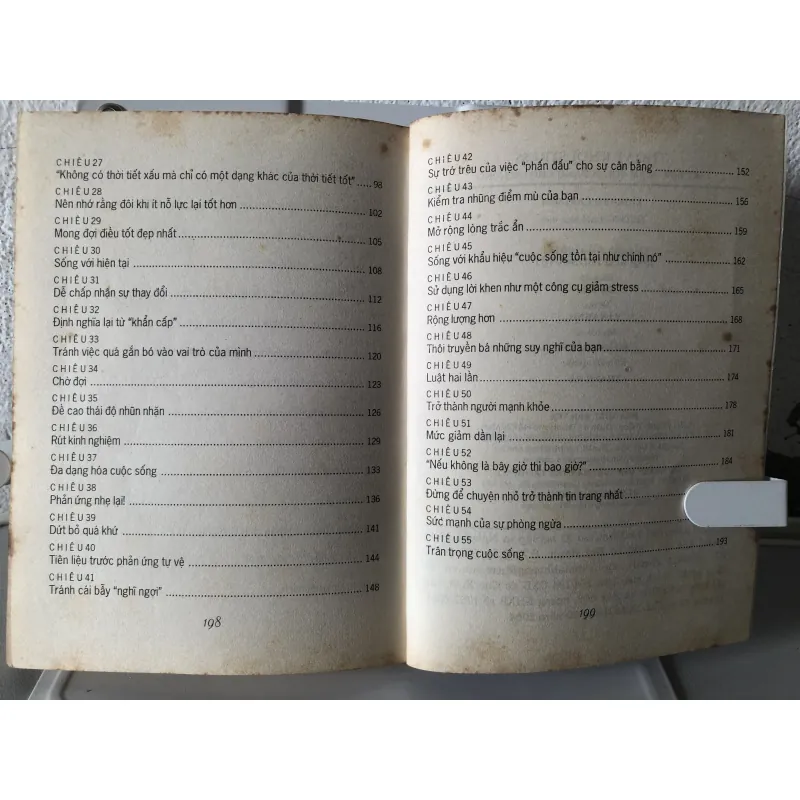 CHIÊU 27
"Không có thời tiết xấu mà chỉ có một dạng khác của thời tiết tốt" ..... 98
CHIÊU 28
Nên nhớ rằng đôi khi ít nỗ lực lại tốt hơn ..... 102
CHIÊU 29
Mong đợi điều tốt đẹp nhất ..... 105
CHIÊU 30
Sống với hiện tại ..... 108
CHIÊU 31
Dễ chấp nhận sự thay đổi ..... 112
CHIÊU 32
Định nghĩa lại từ "khẩn cấp" ..... 116
CHIÊU 33
Tránh việc quá gắn bó vào vai trò của mình ..... 120
CHIÊU 34
Chờ đợi ..... 123
CHIÊU 35
Đề cao thái độ nhũn nhặn ..... 126
CHIÊU 36
Rút kinh nghiệm ..... 129
CHIÊU 37
Đa dạng hóa cuộc sống ..... 133
CHIÊU 38
Phản ứng nhẹ lại! ..... 136
CHIÊU 39
Dứt bỏ quá khứ ..... 141
CHIÊU 40
Tiên liệu trước phản ứng tự vệ ..... 144
CHIÊU 41
Tránh cái bẫy "nghĩ ngợi" ..... 148
198
CHIÊU 42
Sự trớ trêu của việc "phấn đấu" cho sự cân bằng ..... 152
CHIÊU 43
Kiểm tra những điểm mù của bạn ..... 156
CHIÊU 44
Mở rộng lòng trắc ẩn ..... 159
CHIÊU 45
Sống với khẩu hiệu "cuộc sống tồn tại như chính nó" ..... 162
CHIÊU 46
Sử dụng lời khen như một công cụ giảm stress ..... 165
CHIÊU 47
Rộng lượng hơn ..... 168
CHIÊU 48
Thôi truyền bá những suy nghĩ của bạn ..... 171
CHIÊU 49
Luật hai lần ..... 174
CHIÊU 50
Trở thành người mạnh khỏe ..... 178
CHIÊU 51
Mức giảm dần lại ..... 181
CHIÊU 52
"Nếu không là bây giờ thì bao giờ?" ..... 184
CHIÊU 53
Đừng để chuyện nhỏ trở thành tin trang nhất .....
CHIÊU 54
Sức mạnh của sự phòng ngừa .....
CHIÊU 55
Trân trọng cuộc sống ..... 193
199